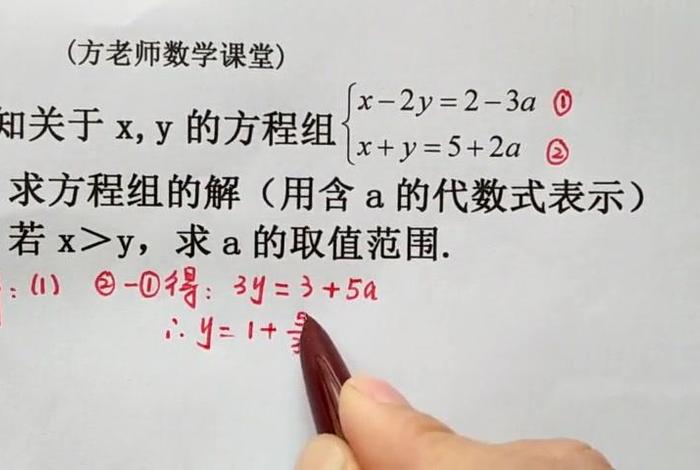 (方老师数学课堂)
知关于 x, y 的方程组 { x－2y＝2－3a ①
x＋y＝5＋2a ②
求方程组的解（用含 a 的代数式表示）
若 x＞y，求 a 的取值范围.
: (1) ②－①得: 3y = 3 + 5a
∴ y = 1 +